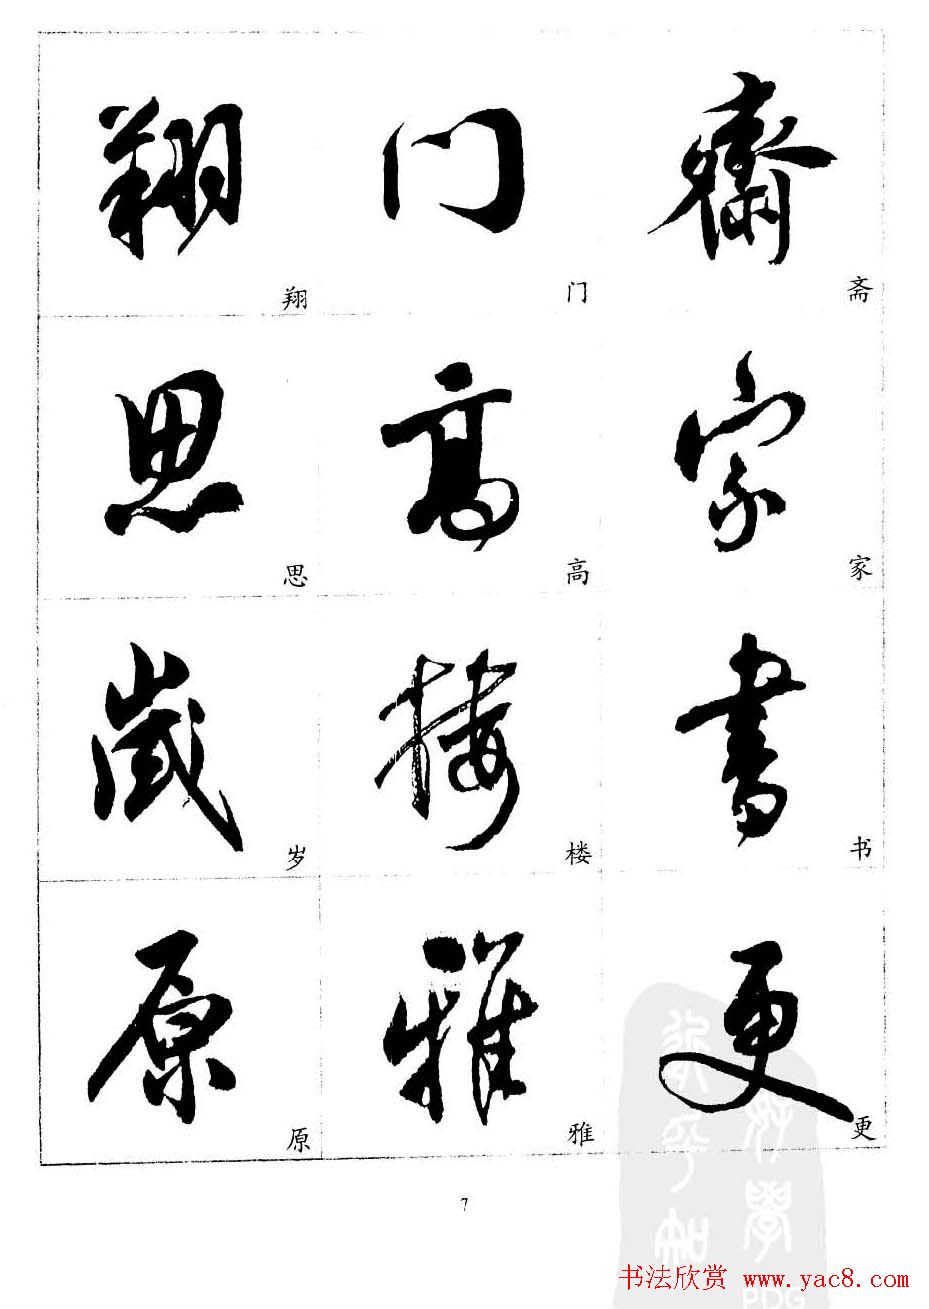 翔 门 齋
翔 门 斋
思 高 家
思 高 家
歲 楼 書
岁 楼 书
原 雅 更
原 雅 更
7
书法欣赏 www.yac8.com
PDG